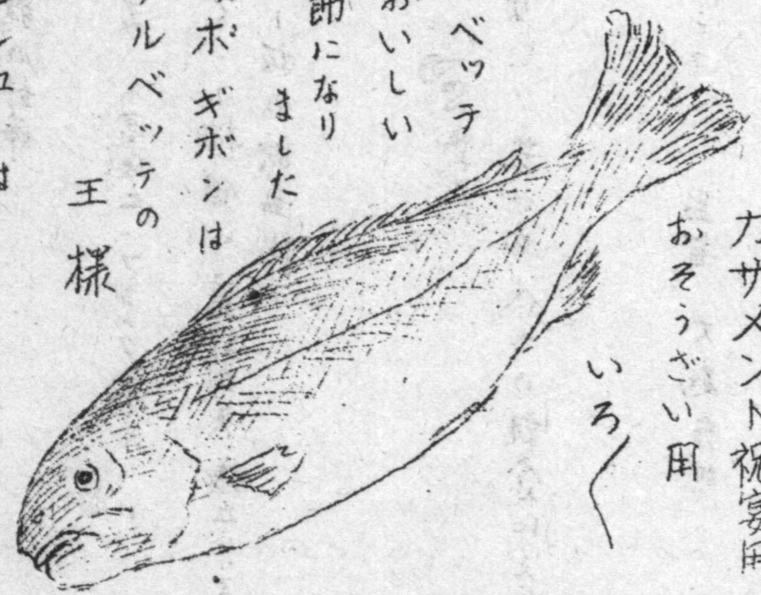 カサメント祝宴用
おそうざい用
いろ〱
ベッテ
おいしい
節になり
ました
ポギボンは
ルベッテの
王様
は